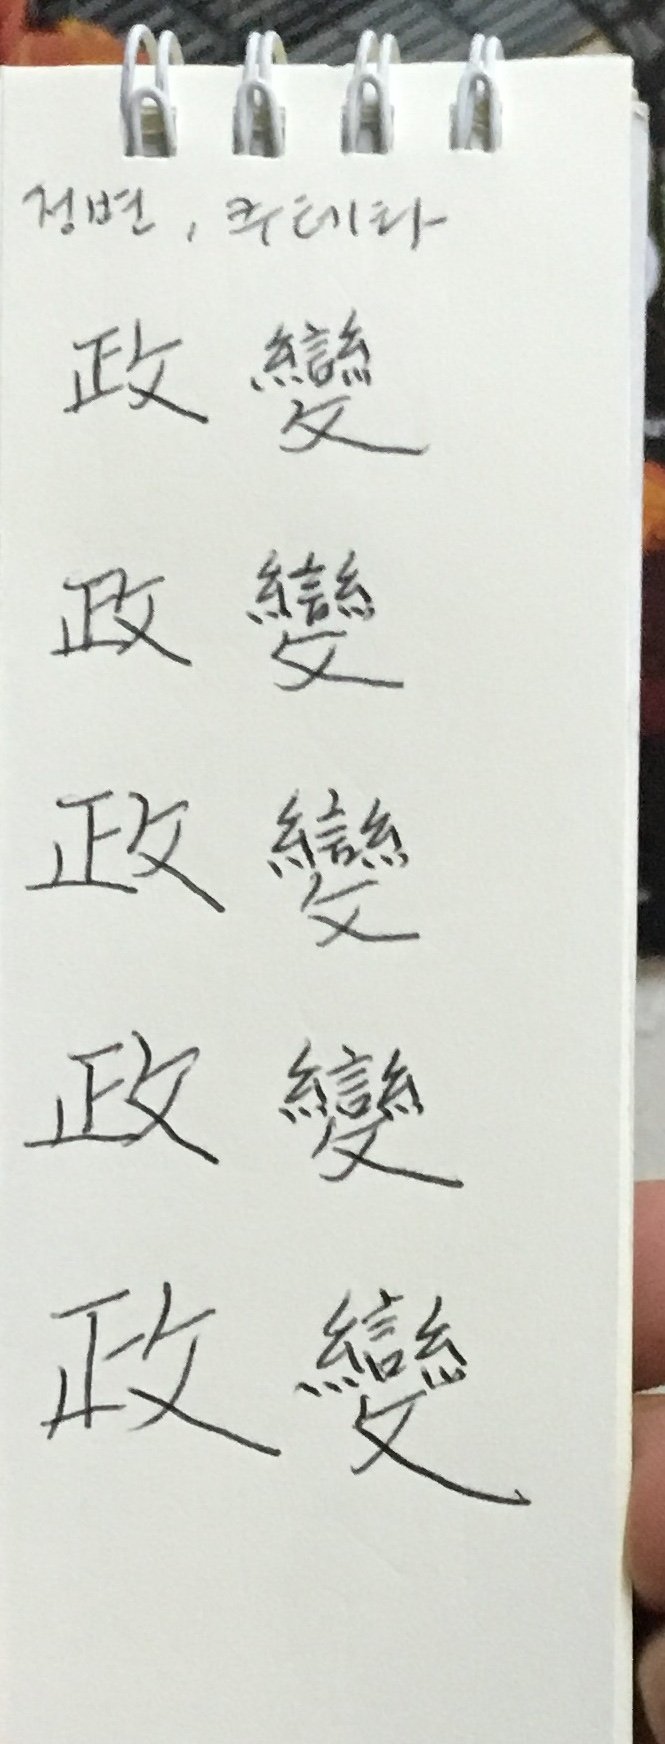 정변, 쿠테타
政 變
政 變
政 變
政 變
政 變